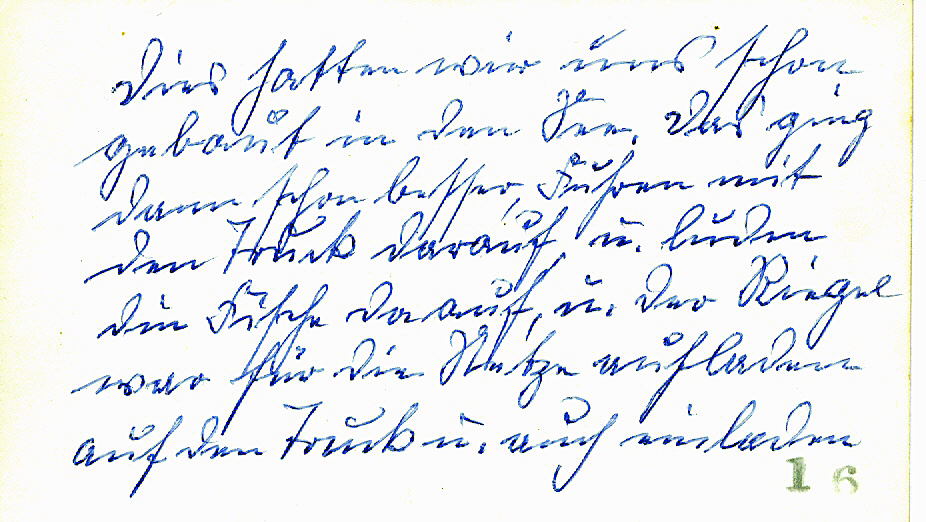 Dies hatten wir uns schon
gebaut in den See. Das ging
dann schon besser, Fuhren mit
den Truck darauf, u. luden
die Fische da auf, u. der Riegel
war für die Netze aufladen
auf den Truck u. auch einladen
16